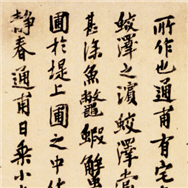 所作也通甫有宅
蛟澤之濵蛟澤當
甚深魚鼈蝦蟹
圃於堤上圃之中作
靜春通甫日乗小